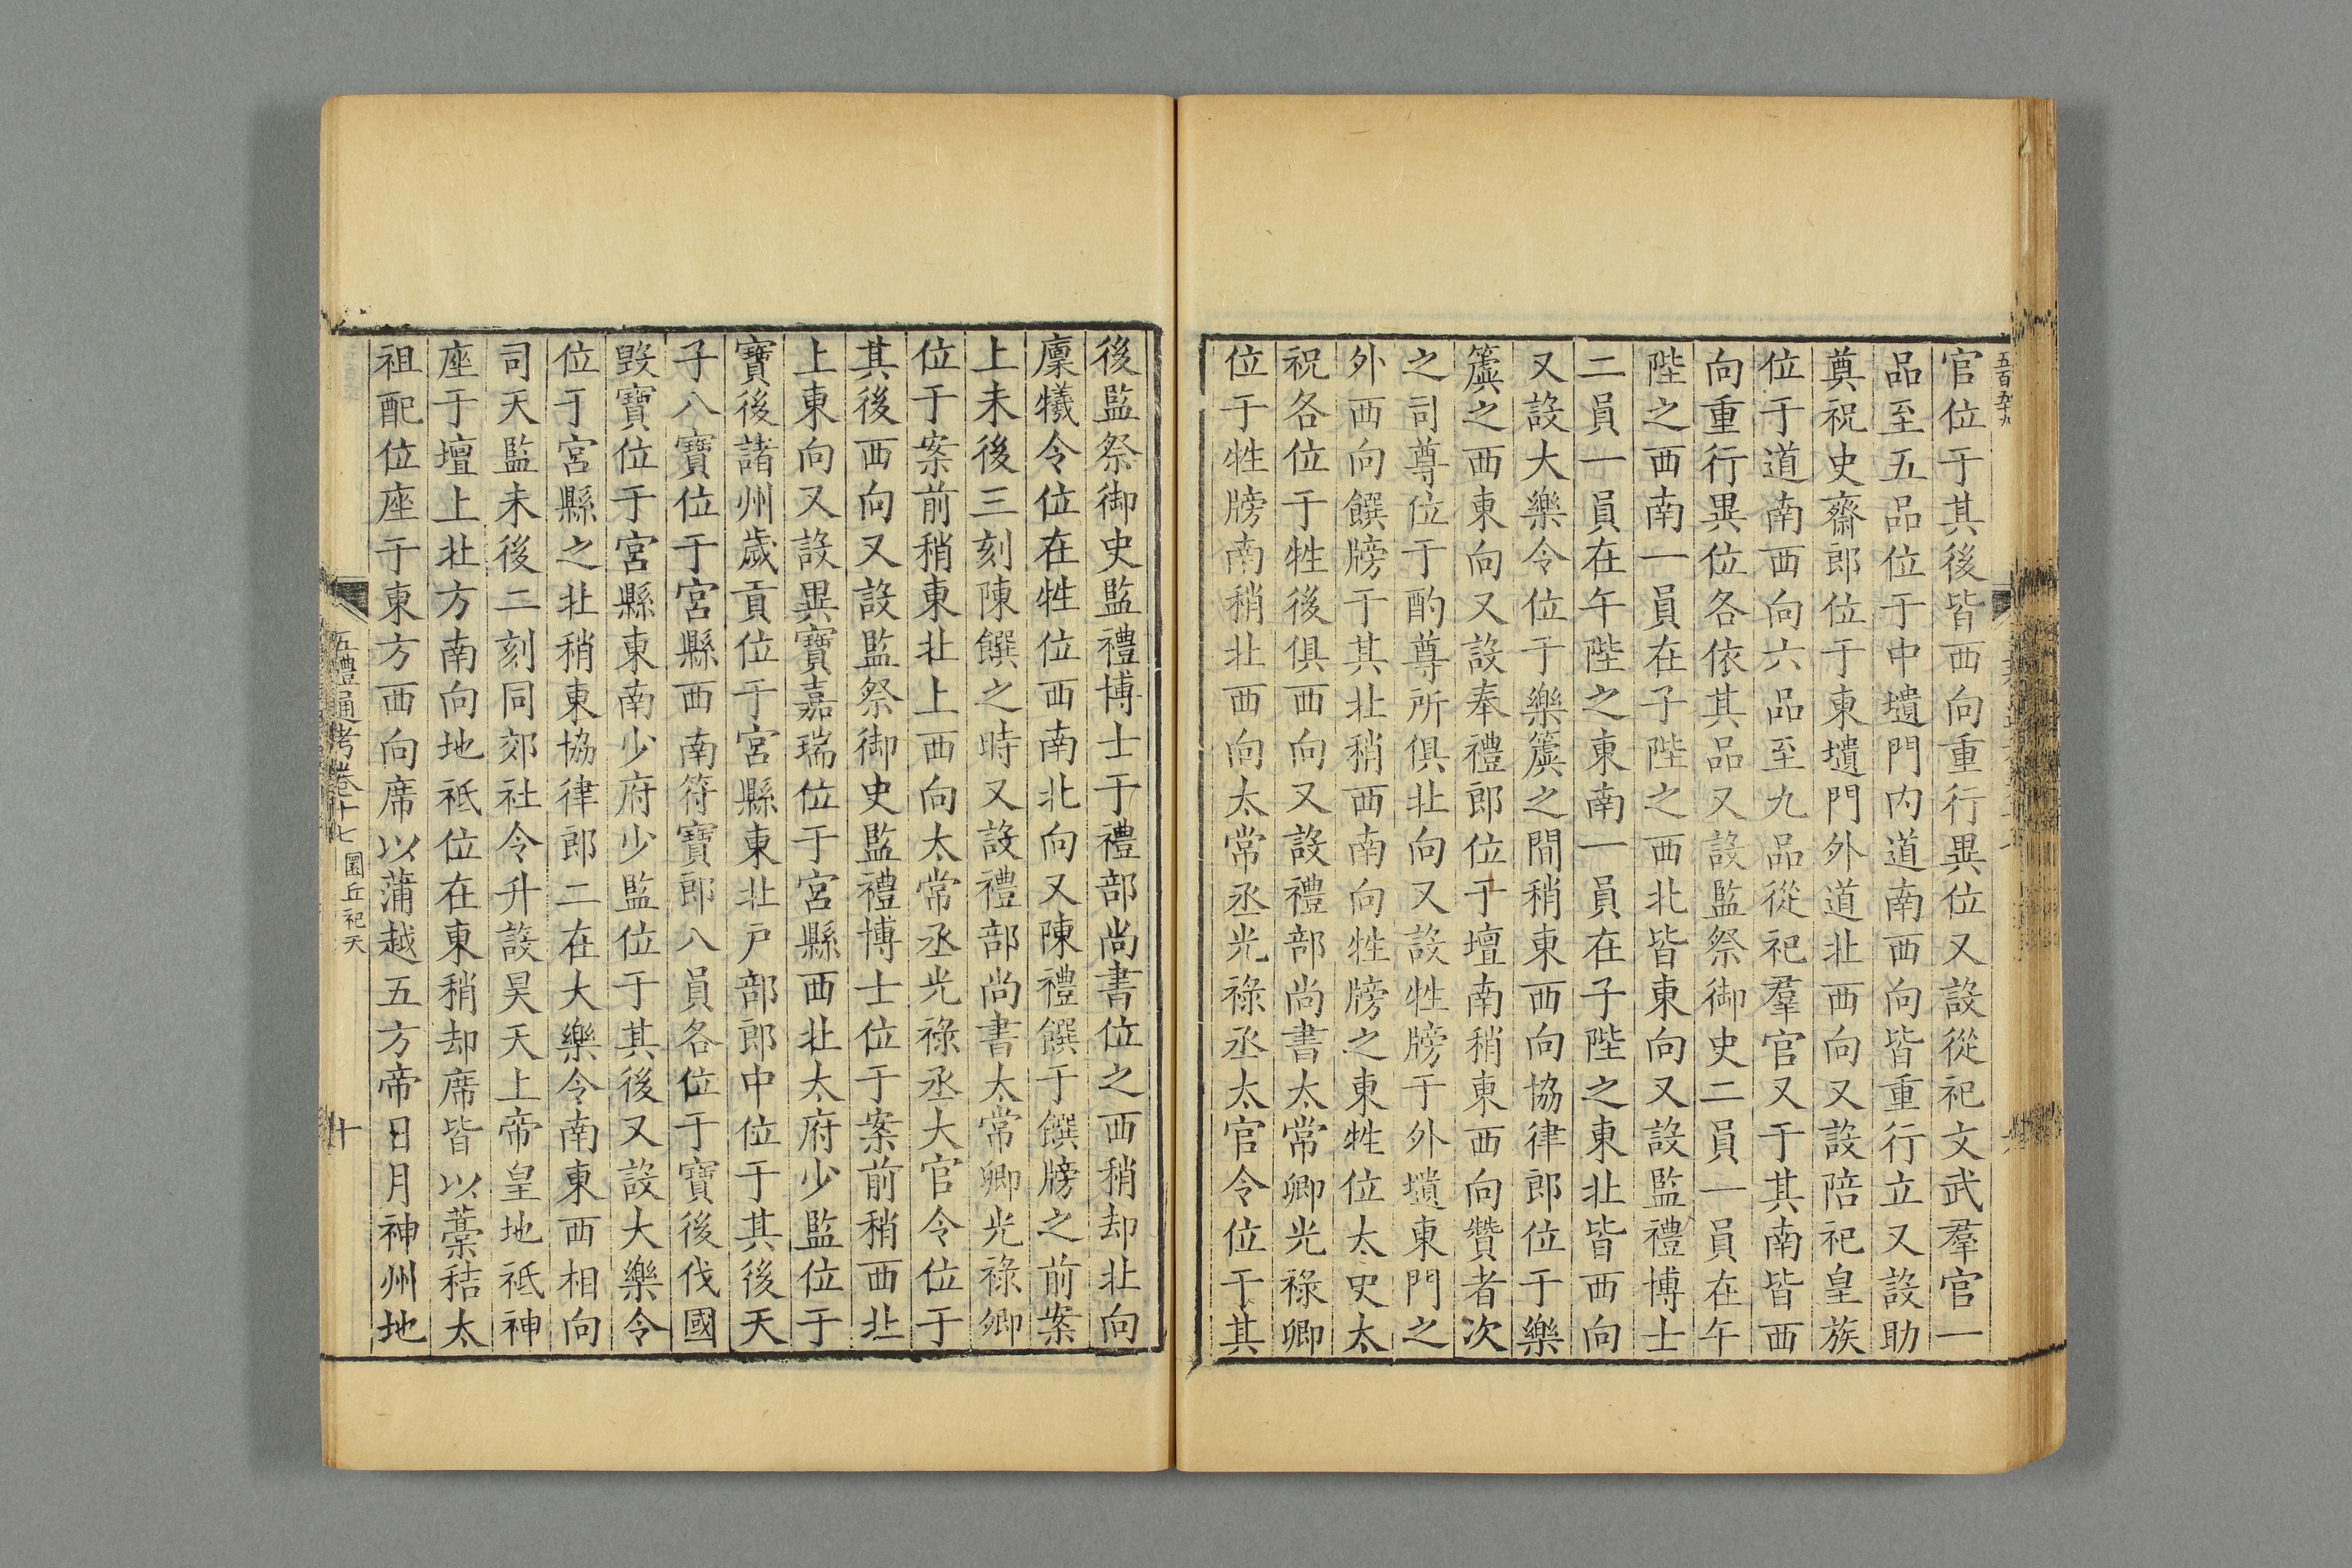 官位于其後皆西向重行異位又設從祀文武羣官一
品至五品位于中壝門內道南西向皆重行立又設助
奠祝史齋郎位于東壝門外道北西向又設陪祀皇族
位于道南西向六品至九品從祀羣官又于其南皆西
向重行異位各依其品又設監祭御史二員一員在午
陛之西南一員在子陛之西北皆東向又設監禮博士
二員一員在午陛之東南一員在子陛之東北皆西向
又設大樂令位于樂簴之間稍東西向協律郎位于樂
簴之西東向又設奉禮郎位于壇南稍東西向贊者次
之司尊位于酌尊所俱北向又設牲牓于外壝東門之
外西向饌牓于其北稍西南向牲牓之東牲位太史太
祝各位于牲後俱西向又設禮部尚書太常卿光祿卿
位于牲牓南稍北西向太常丞光祿丞太官令位于其
後監祭御史監禮博士于禮部尚書位之西稍却北向
廩犧令位在牲位西南北向又陳禮饌于饌牓之前案
上未後三刻陳饌之時又設禮部尚書太常卿光祿卿
位于案前稍東北上西向太常丞光祿丞大官令位于
其後西向又設監祭御史監禮博士位于案前稍西北
上東向又設異寶嘉瑞位于宮縣西北太府少監位于
寶後諸州歲貢位于宮縣東北戶部郎中位于其後天
子八寶位于宮縣西南符寶郎八員各位于寶後伐國
毀寶位于宮縣東南少府少監位于其後又設大樂令
位于宮縣之北稍東協律郎二在大樂令南東西相向
司天監未後二刻同郊社令升設昊天上帝皇地祇神
座于壇上北方南向地祇位在東稍却席皆以藁秸太
祖配位座于東方西向席以蒲越五方帝日月神州地
五禮通考卷十七 圜丘祀天
十